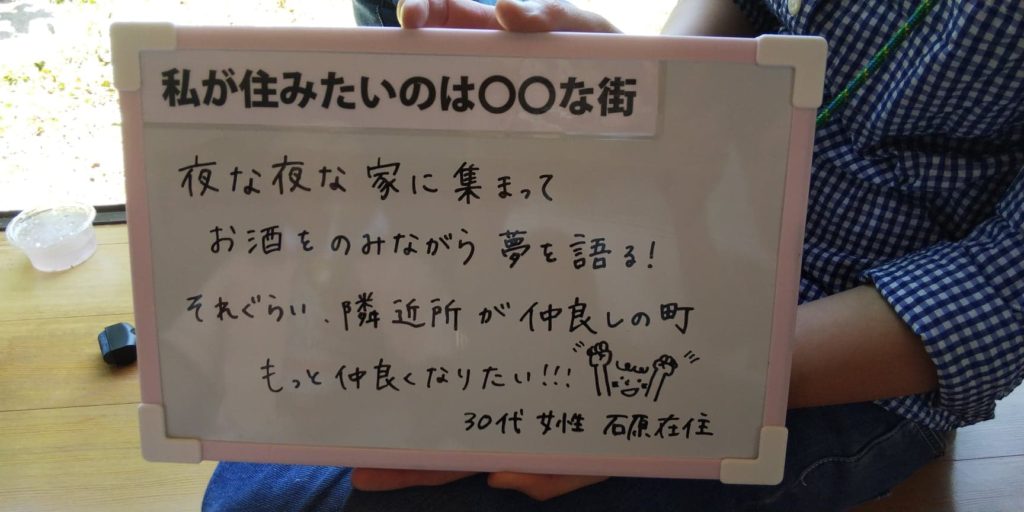 私が住みたいのは〇〇な街
夜な夜な家に集まって
お酒をのみながら夢を語る!
それぐらい、隣近所が仲良しの町
もっと仲良くなりたい!!!
30代 女性 石原在住